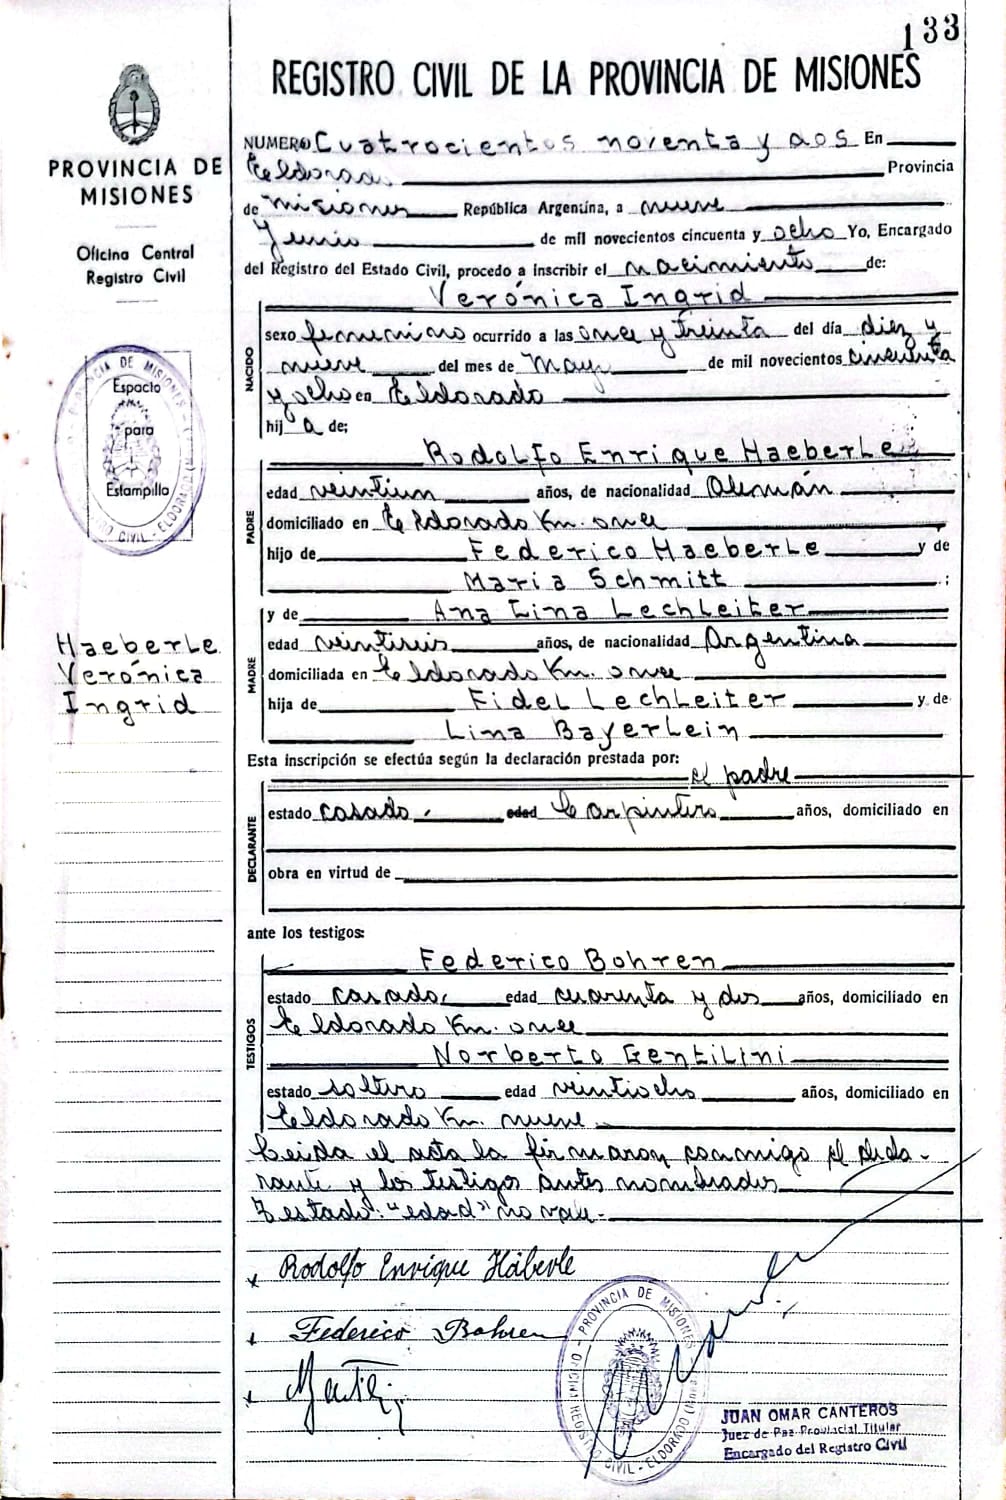 133
REGISTRO CIVIL DE LA PROVINCIA DE MISIONES
PROVINCIA DE
MISIONES
Oficina Central
Registro Civil
PROVINCIA DE MISIONES
Espacio
para
Estampilla
CIVIL - ELDORADO
Haeberle
Verónica
Ingrid
NUMERO Cuatrocientos noventa y dos En
Eldorado Provincia
de Misiones República Argentina, a nueve
Junio de mil novecientos cincuenta y ocho Yo, Encargado
del Registro del Estado Civil, procedo a inscribir el nacimiento de:
Verónica Ingrid
NACIDO
sexo femenino ocurrido a las once y treinta del día diez y
nueve del mes de Mayo de mil novecientos cincuenta
y ocho en Eldorado
hij a de;
Rodolfo Enrique Haeberle
PADRE
edad veintiun años, de nacionalidad Alemán
domiciliado en Eldorado Km. once
hijo de Federico Haeberle y de
Maria Schmitt ;
y de Ana Lina Lechleiter
MADRE
edad veintiseis años, de nacionalidad Argentina
domiciliada en Eldorado Km. once
hija de Fidel Lechleiter y de
Lina Bayerlein
Esta inscripción se efectúa según la declaración prestada por:
el padre
DECLARANTE
estado casado, edad Carpintero años, domiciliado en
obra en virtud de
ante los testigos:
Federico Bohren
TESTIGOS
estado casado, edad cuarenta y dos años, domiciliado en
Eldorado Km. once
Norberto Gentilini
estado soltero edad veintiocho años, domiciliado en
Eldorado Km. nueve
Leida el acta la firmaron conmigo el decla-
rante y los testigos antes nombrados
Testado: "edad" no vale.-
x Rodolfo Enrique Häberle
x Federico Bohren
x
PROVINCIA DE MISIONES
REGISTRO CIVIL - ELDORADO
JUAN OMAR CANTEROS
Juez de Paz Provincial Titular
Encargado del Registro Civil